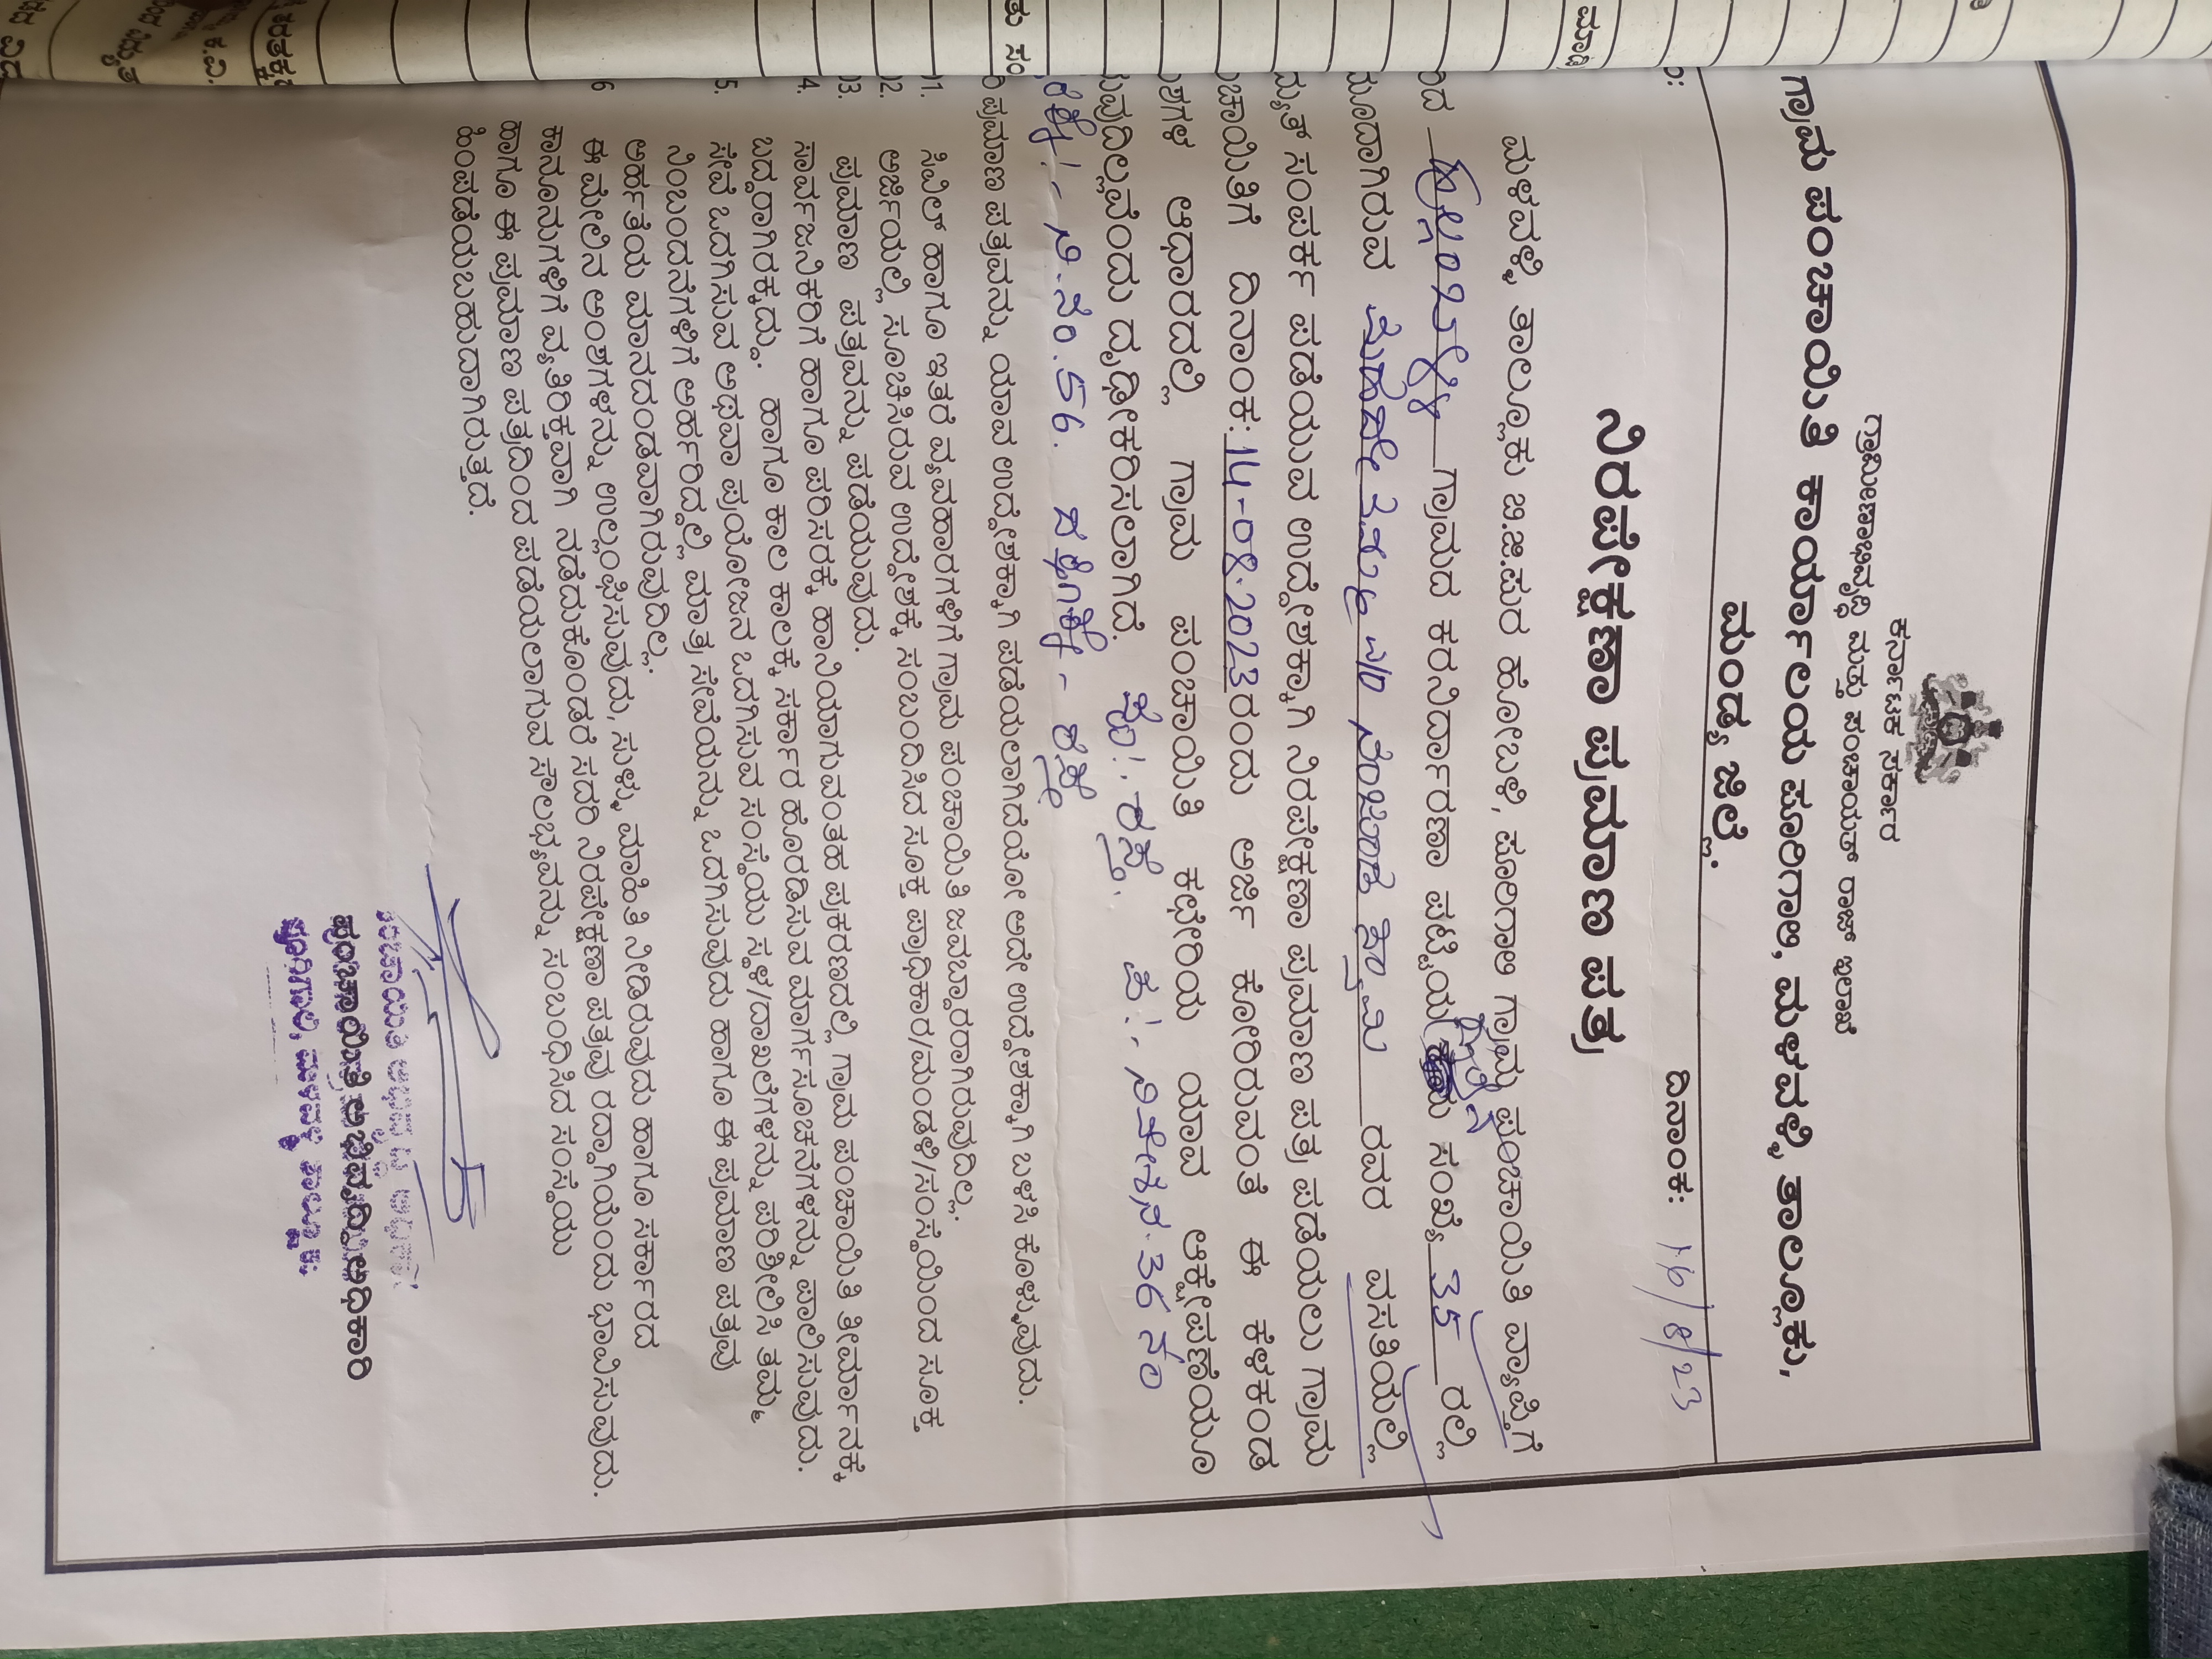 ಕರ್ನಾಟಕ ಸರ್ಕಾರ
ಗ್ರಾಮೀಣಾಭಿವೃದ್ಧಿ ಮತ್ತು ಪಂಚಾಯತ್ ರಾಜ್ ಇಲಾಖೆ
ಗ್ರಾಮ ಪಂಚಾಯಿತಿ ಕಾರ್ಯಾಲಯ ಪೂರಿಗಾಲಿ, ಮಳವಳ್ಳಿ ತಾಲ್ಲೂಕು,
ಮಂಡ್ಯ ಜಿಲ್ಲೆ.
ದಿನಾಂಕ: 16/8/23
ನಿರಪೇಕ್ಷಣಾ ಪ್ರಮಾಣ ಪತ್ರ
ಮಳವಳ್ಳಿ ತಾಲ್ಲೂಕು ಬಿ.ಜಿ.ಪುರ ಹೋಬಳಿ, ಪೂರಿಗಾಲಿ ಗ್ರಾಮ ಪಂಚಾಯಿತಿ ವ್ಯಾಪ್ತಿಗೆ
ಗ್ರಾಮದ ಕರನಿರ್ಧಾರಣಾ ಪಟ್ಟಿಯ ಸಂಖ್ಯೆ 35 ರಲ್ಲಿ
ದಾಗಿರುವ ರವರ ವಸತಿಯಲ್ಲಿ
ವಿದ್ಯುತ್ ಸಂಪರ್ಕ ಪಡೆಯುವ ಉದ್ದೇಶಕ್ಕಾಗಿ ನಿರಪೇಕ್ಷಣಾ ಪ್ರಮಾಣ ಪತ್ರ ಪಡೆಯಲು ಗ್ರಾಮ
ಪಂಚಾಯಿತಿಗೆ ದಿನಾಂಕ: 14-08-2023 ರಂದು ಅರ್ಜಿ ಕೋರಿರುವಂತೆ ಈ ಕೆಳಕಂಡ
ಅಂಶಗಳ ಆಧಾರದಲ್ಲಿ ಗ್ರಾಮ ಪಂಚಾಯಿತಿ ಕಛೇರಿಯ ಯಾವ ಆಕ್ಷೇಪಣೆಯೂ
ಇರುವುದಿಲ್ಲವೆಂದು ದೃಢೀಕರಿಸಲಾಗಿದೆ. ಪೂ:- ರಸ್ತೆ. ಪ:- 36 ನೇ
ನಿ.ಸಂ.56. ದಕ್ಷಿಣಕ್ಕೆ - ರಸ್ತೆ
ಈ ಪ್ರಮಾಣ ಪತ್ರವನ್ನು ಯಾವ ಉದ್ದೇಶಕ್ಕಾಗಿ ಪಡೆಯಲಾಗಿದೆಯೋ ಅದೇ ಉದ್ದೇಶಕ್ಕಾಗಿ ಬಳಸಿ ಕೊಳ್ಳುವುದು.
1. ಸಿವಿಲ್ ಹಾಗೂ ಇತರೆ ವ್ಯವಹಾರಗಳಿಗೆ ಗ್ರಾಮ ಪಂಚಾಯಿತಿ ಜವಬ್ದಾರರಾಗಿರುವುದಿಲ್ಲ.
2. ಅರ್ಜಿಯಲ್ಲಿ ಸೂಚಿಸಿರುವ ಉದ್ದೇಶಕ್ಕೆ ಸಂಬಂದಿಸಿದ ಸೂಕ್ತ ಪ್ರಾಧಿಕಾರ/ಮಂಡಳಿ/ಸಂಸ್ಥೆಯಿಂದ ಸೂಕ್ತ
ಪ್ರಮಾಣ ಪತ್ರವನ್ನು ಪಡೆಯುವುದು.
3. ಸಾರ್ವಜನಿಕರಿಗೆ ಹಾಗೂ ಪರಿಸರಕ್ಕೆ ಹಾನಿಯಾಗುವಂತಹ ಪ್ರಕರಣದಲ್ಲಿ ಗ್ರಾಮ ಪಂಚಾಯಿತಿ ತೀರ್ಮಾನಕ್ಕೆ
ಬದ್ದರಾಗಿರತಕ್ಕದ್ದು. ಹಾಗೂ ಕಾಲ ಕಾಲಕ್ಕೆ ಸರ್ಕಾರ ಹೊರಡಿಸುವ ಮಾರ್ಗಸೂಚನೆಗಳನ್ನು ಪಾಲಿಸುವುದು.
4. ಸೇವೆ ಒದಗಿಸುವ ಅಥವಾ ಪ್ರಯೋಜನ ಒದಗಿಸುವ ಸಂಸ್ಥೆಯು ಸ್ಥಳ/ದಾಖಲೆಗಳನ್ನು ಪರಿಶೀಲಿಸಿ ತಮ್ಮ
ನಿಬಂದನೆಗಳಿಗೆ ಅರ್ಹರಿದ್ದಲ್ಲಿ ಮಾತ್ರ ಸೇವೆಯನ್ನು ಒದಗಿಸುವುದು ಹಾಗೂ ಈ ಪ್ರಮಾಣ ಪತ್ರವು
ಅರ್ಹತೆಯ ಮಾನದಂಡವಾಗಿರುವುದಿಲ್ಲ.
5. ಈ ಮೇಲಿನ ಅಂಶಗಳನ್ನು ಉಲ್ಲಂಘಿಸುವುದು, ಸುಳ್ಳು ಮಾಹಿತಿ ನೀಡಿರುವುದು ಹಾಗೂ ಸರ್ಕಾರದ
ಕಾನೂನುಗಳಿಗೆ ವ್ಯತಿರಿಕ್ತವಾಗಿ ನಡೆದುಕೊಂಡರೆ ಸದರಿ ನಿರಪೇಕ್ಷಣಾ ಪತ್ರವು ರದ್ದಾಗಿಯೆಂದು ಭಾವಿಸುವುದು.
6 ಹಾಗೂ ಈ ಪ್ರಮಾಣ ಪತ್ರದಿಂದ ಪಡೆಯಲಾಗುವ ಸೌಲಭ್ಯವನ್ನು ಸಂಬಂಧಿಸಿದ ಸಂಸ್ಥೆಯು
ಹಿಂಪಡೆಯಬಹುದಾಗಿರುತ್ತದೆ.
ಪಂಚಾಯಿತಿ ಅಭಿವೃದ್ಧಿ ಅಧಿಕಾರಿ
ಪೂರಿಗಾಲಿ, ಮಳವಳ್ಳಿ ತಾಲ್ಲೂಕು